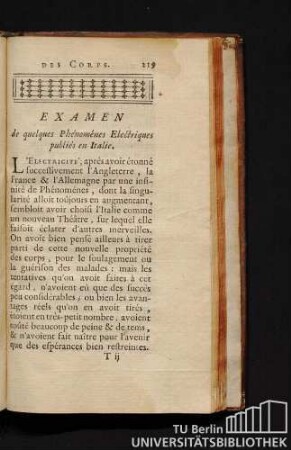 DES CORPS. 219
EXAMEN
de quelques Phénomènes Electriques
publiés en Italie.
L'ELECTRICITÉ, après avoir étonné
successivement l'Angleterre, la
France & l'Allemagne par une infi-
nité de Phénomènes, dont la singu-
larité alloit toûjours en augmentant,
sembloit avoir choisi l'Italie comme
un nouveau Théâtre, sur lequel elle
faisoit éclater d'autres merveilles.
On avoit bien pensé ailleurs à tirer
parti de cette nouvelle propriété
des corps, pour le soulagement ou
la guérison des malades : mais les
tentatives qu'on avoit faites à cet
égard, n'avoient eû que des succès
peu considérables ; ou bien les avan-
tages réels qu'on en avoit tirés,
étoient en très-petit nombre, avoient
coûté beaucoup de peine & de tems,
& n'avoient fait naître pour l'avenir
que des espérances bien restreintes.
T ij
TU Berlin
UNIVERSITÄTSBIBLIOTHEK